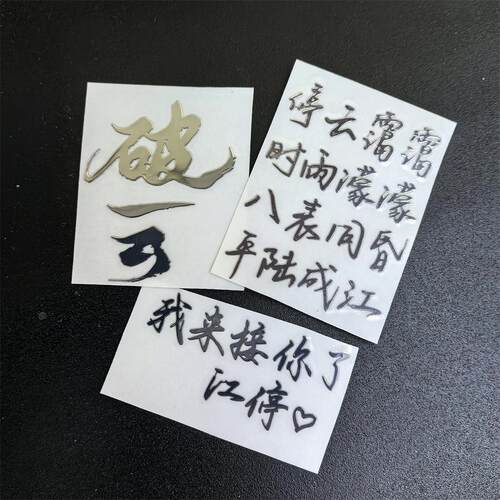 破
云
停云霭霭
时雨濛濛
八表同昏
平陆成江
我来接你了
江停♡